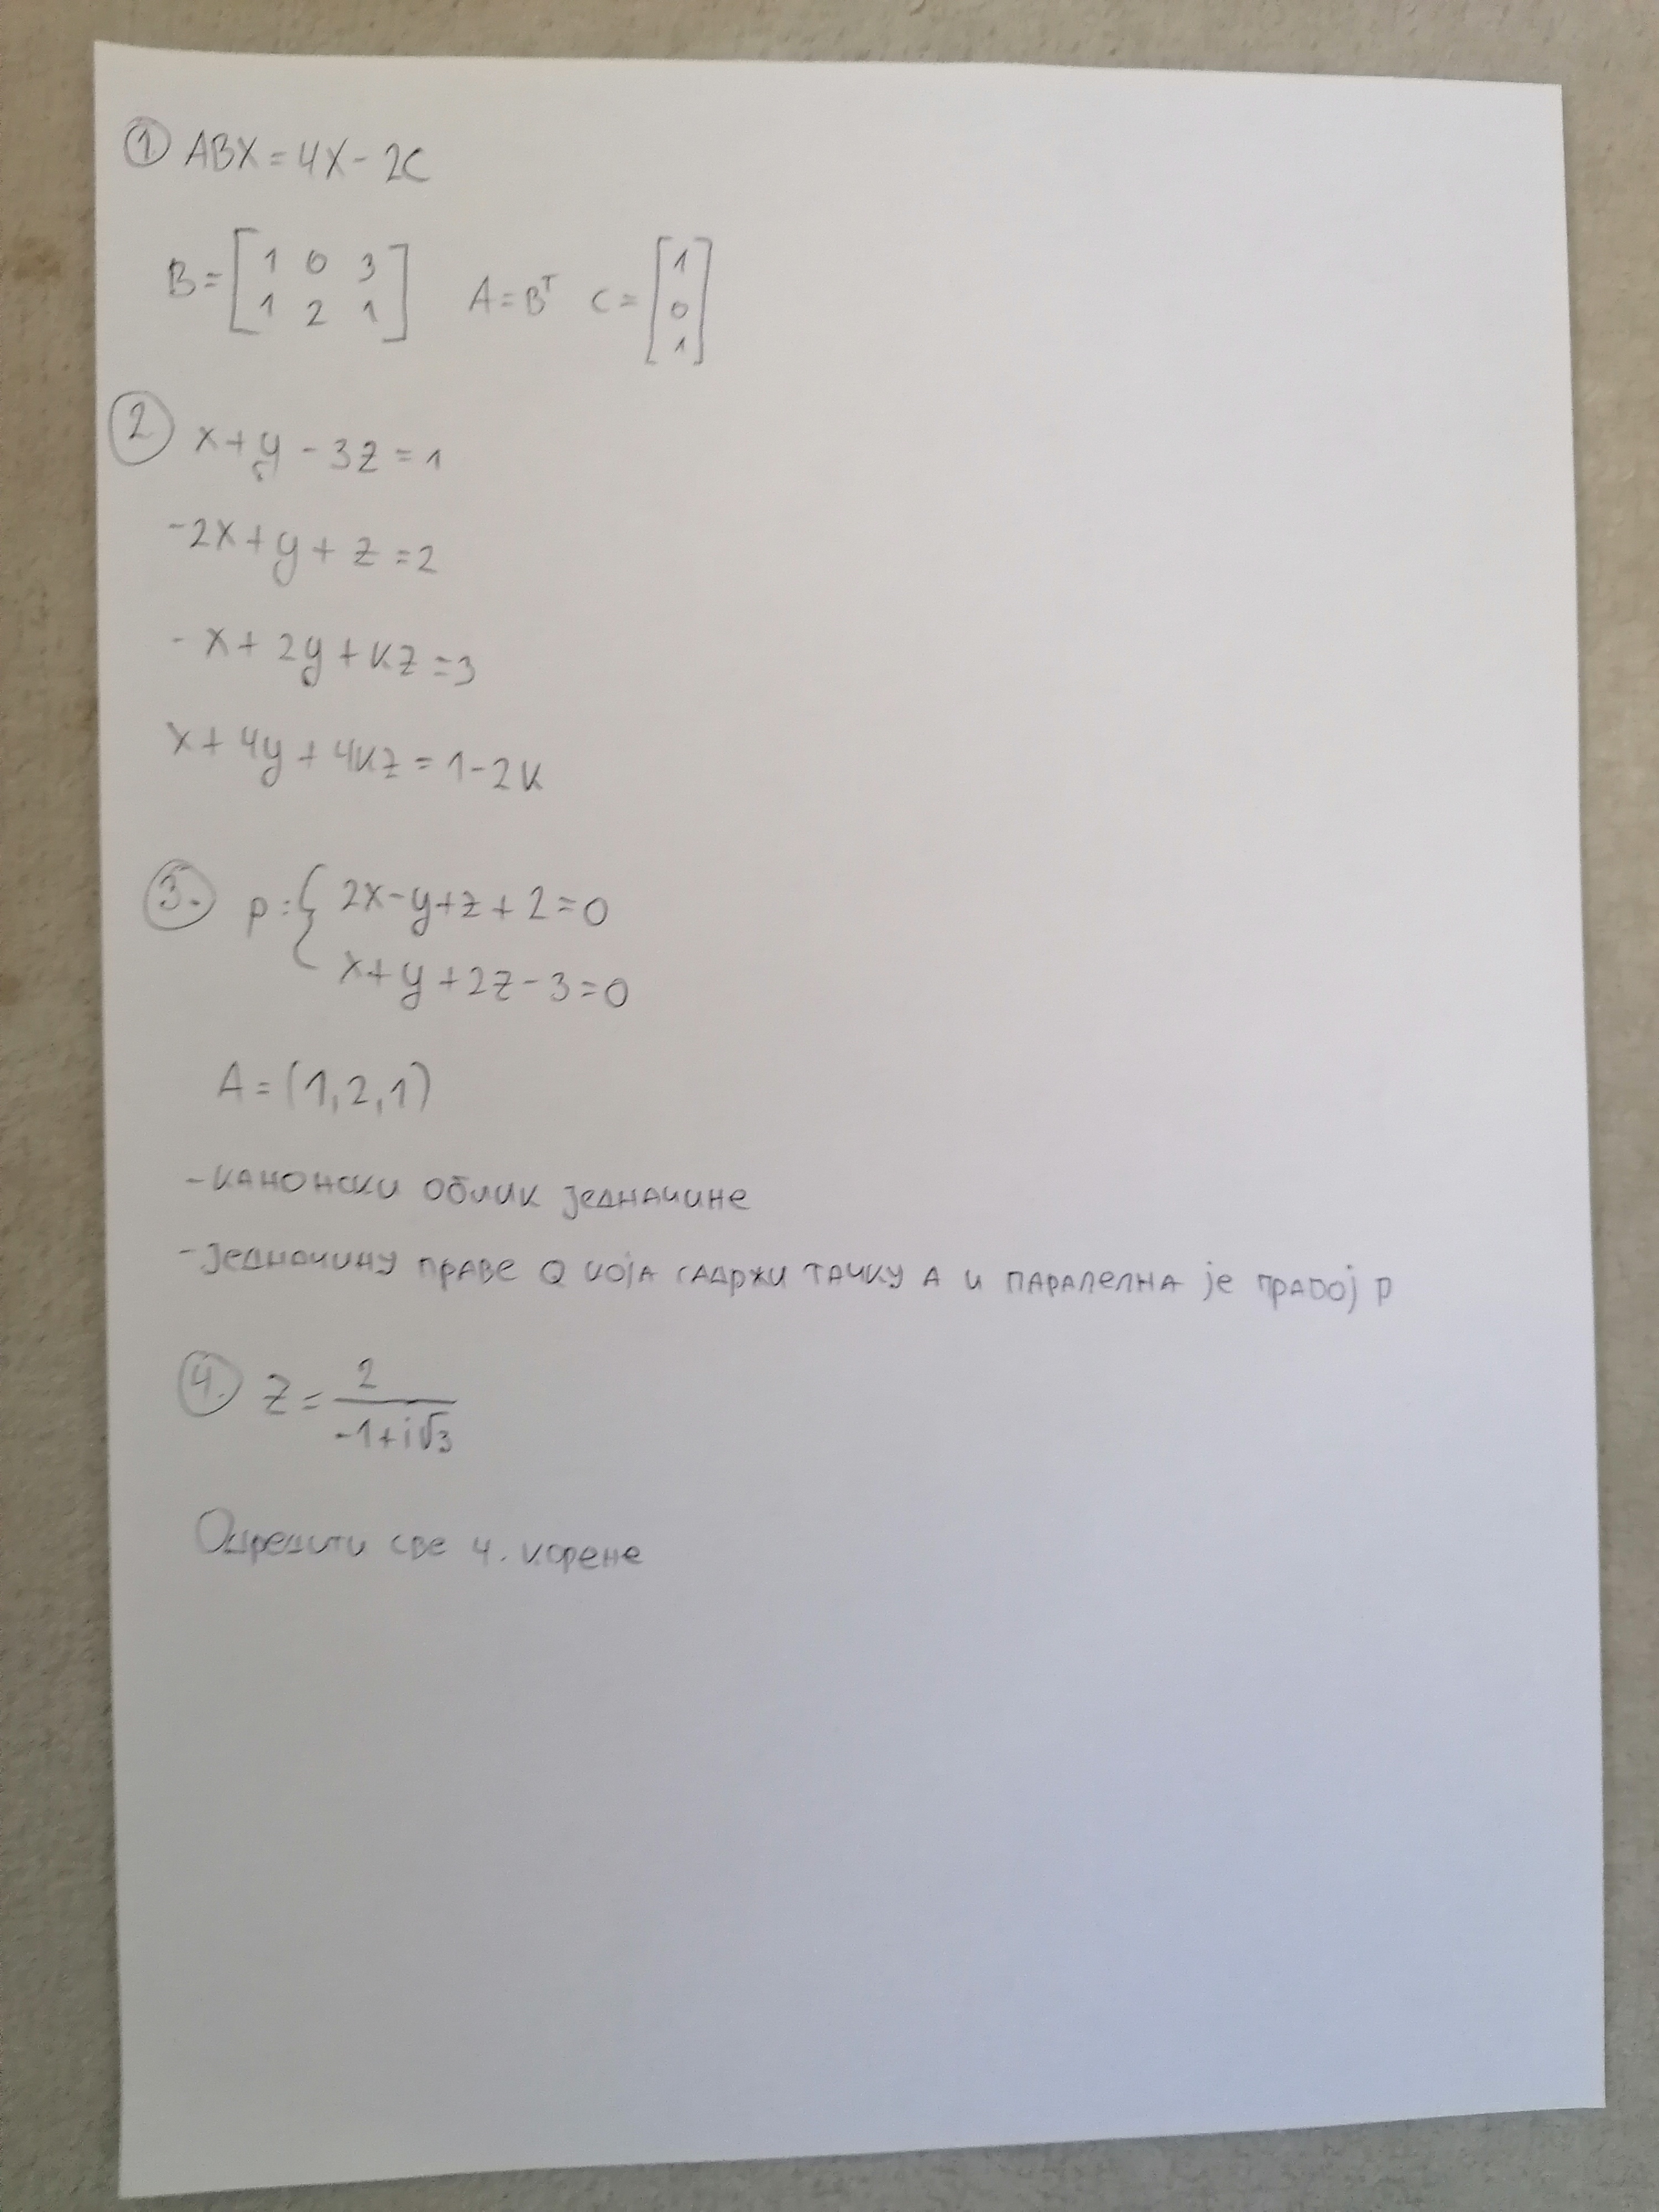 1. ABX = 4X - 2C
B = [1 0 3; 1 2 1] A = Bᵀ C = [1; 0; 1]
2 x + y - 3z = 1
-2x + y + z = 2
- x + 2y + kz = 3
x + 4y + 4kz = 1 - 2k
3. p: { 2x - y + z + 2 = 0
x + y + 2z - 3 = 0
A = (1, 2, 1)
- канонски облик једначине
- једначину праве Q која садржи тачку А и паралелна је правој p
4. z = 2 / (-1 + i√3)
Одредити све 4. корене